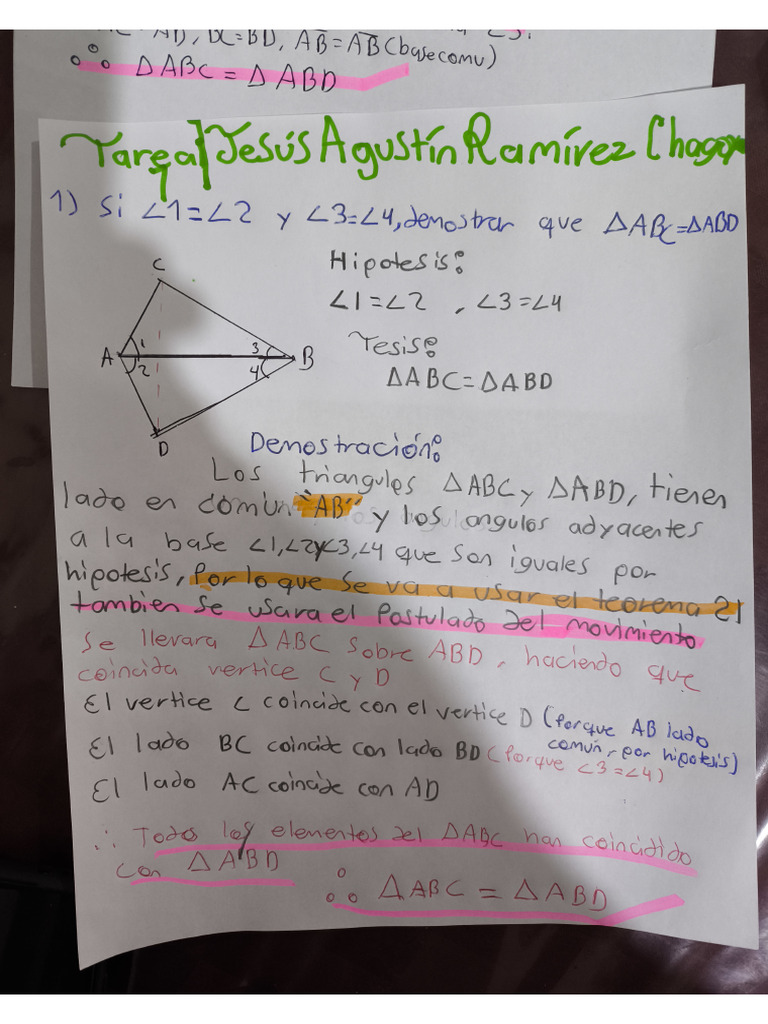 = AD, BC=BD, AB=AB (base comu)
∴ △ABC = △ABD
Tarea Jesús Agustín Ramírez
1) Si ∠1=∠2 y ∠3=∠4, demostrar que △ABC=△ABD
Hipotesis:
∠1=∠2 , ∠3=∠4
Tesis:
△ABC=△ABD
C
A 1 2 3 4 B
D
Demostración:
Los triangulos △ABC y △ABD, tienen
lado en comun "AB" y los angulos adyacentes
a la base ∠1,∠2 y ∠3,∠4 que son iguales por
hipotesis, Por lo que se va a usar el teorema 21
tambien se usara el Postulado del movimiento
Se llevara △ABC sobre ABD, haciendo que
coincida vertice C y D
El vertice C coincide con el vertice D (Porque AB lado
común, por hipotesis)
El lado BC coincide con lado BD (Porque ∠3=∠4)
El lado AC coincide con AD
∴ Todos los elementos del △ABC han coincidido
con △ABD
∴ △ABC = △ABD